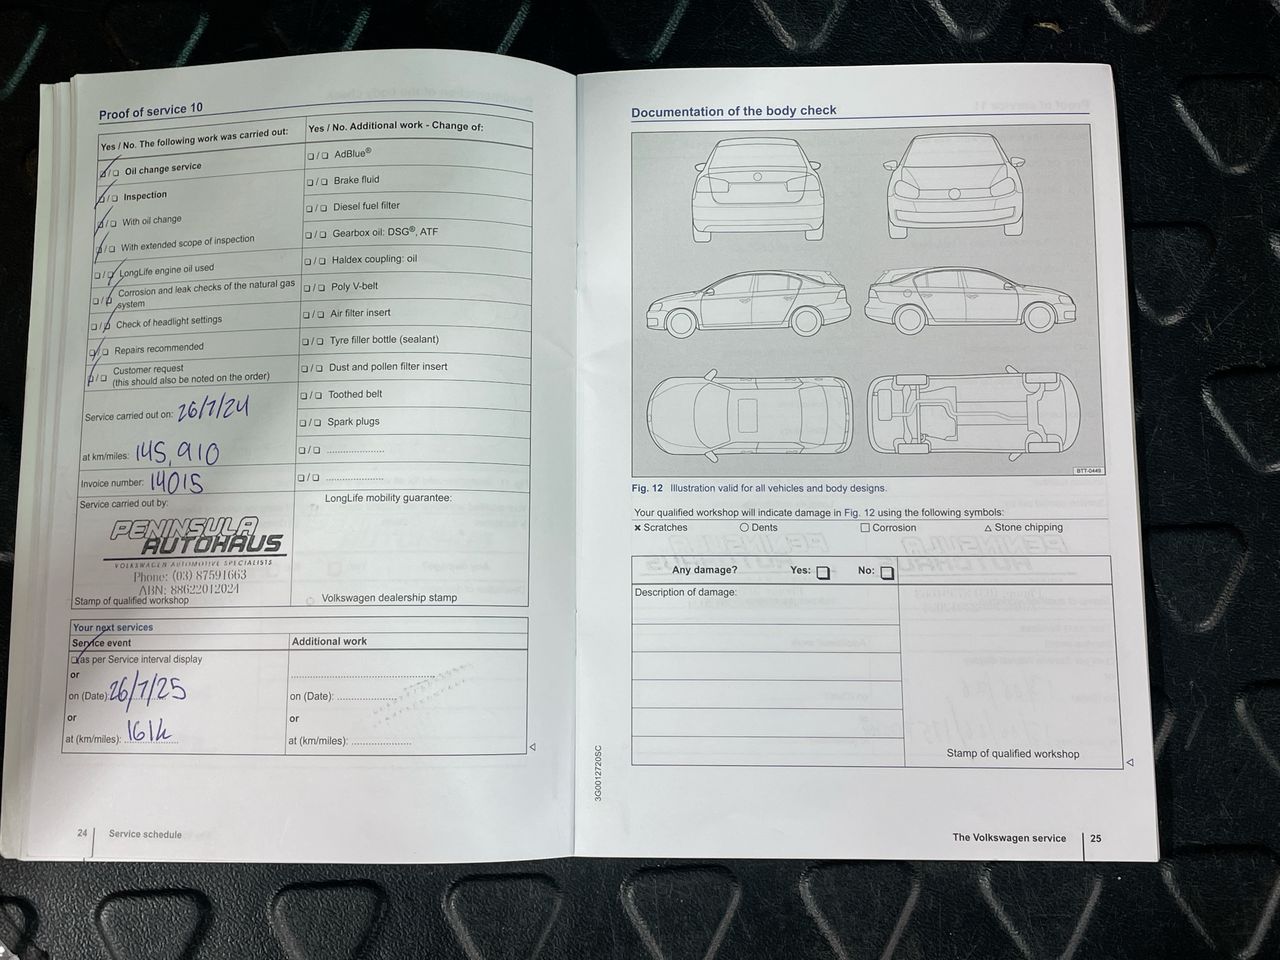 Proof of service 10
Yes / No. The following work was carried out:
❏/❏ Oil change service
❏/❏ Inspection
❏/❏ With oil change
❏/❏ With extended scope of inspection
❏/❏ LongLife engine oil used
❏/❏ Corrosion and leak checks of the natural gas
system
❏/❏ Check of headlight settings
❏/❏ Repairs recommended
❏/❏ Customer request
(this should also be noted on the order)
Service carried out on: 26/7/24
at km/miles: 145,910
Invoice number: 14015
Service carried out by:
PENINSULA
AUTOHAUS
VOLKSWAGEN AUTOMOTIVE SPECIALISTS
Phone: (03) 87591663
ABN: 88622012024
Stamp of qualified workshop
Yes / No. Additional work - Change of:
❏/❏ AdBlue®
❏/❏ Brake fluid
❏/❏ Diesel fuel filter
❏/❏ Gearbox oil: DSG®, ATF
❏/❏ Haldex coupling: oil
❏/❏ Poly V-belt
❏/❏ Air filter insert
❏/❏ Tyre filler bottle (sealant)
❏/❏ Dust and pollen filter insert
❏/❏ Toothed belt
❏/❏ Spark plugs
❏/❏ ....................
❏/❏ ....................
LongLife mobility guarantee:
Volkswagen dealership stamp
Your next services
Service event
❏ as per Service interval display
or
on (Date): 26/7/25
or
at (km/miles): 161k
Additional work
..................................................
on (Date): ....................
or
at (km/miles): ....................
24 Service schedule
Documentation of the body check
BTT-0449
Fig. 12 Illustration valid for all vehicles and body designs.
Your qualified workshop will indicate damage in Fig. 12 using the following symbols:
✖ Scratches ○ Dents □ Corrosion △ Stone chipping
Any damage? Yes: ❏ No: ❏
Description of damage:
Stamp of qualified workshop
3G0012720SC
The Volkswagen service 25